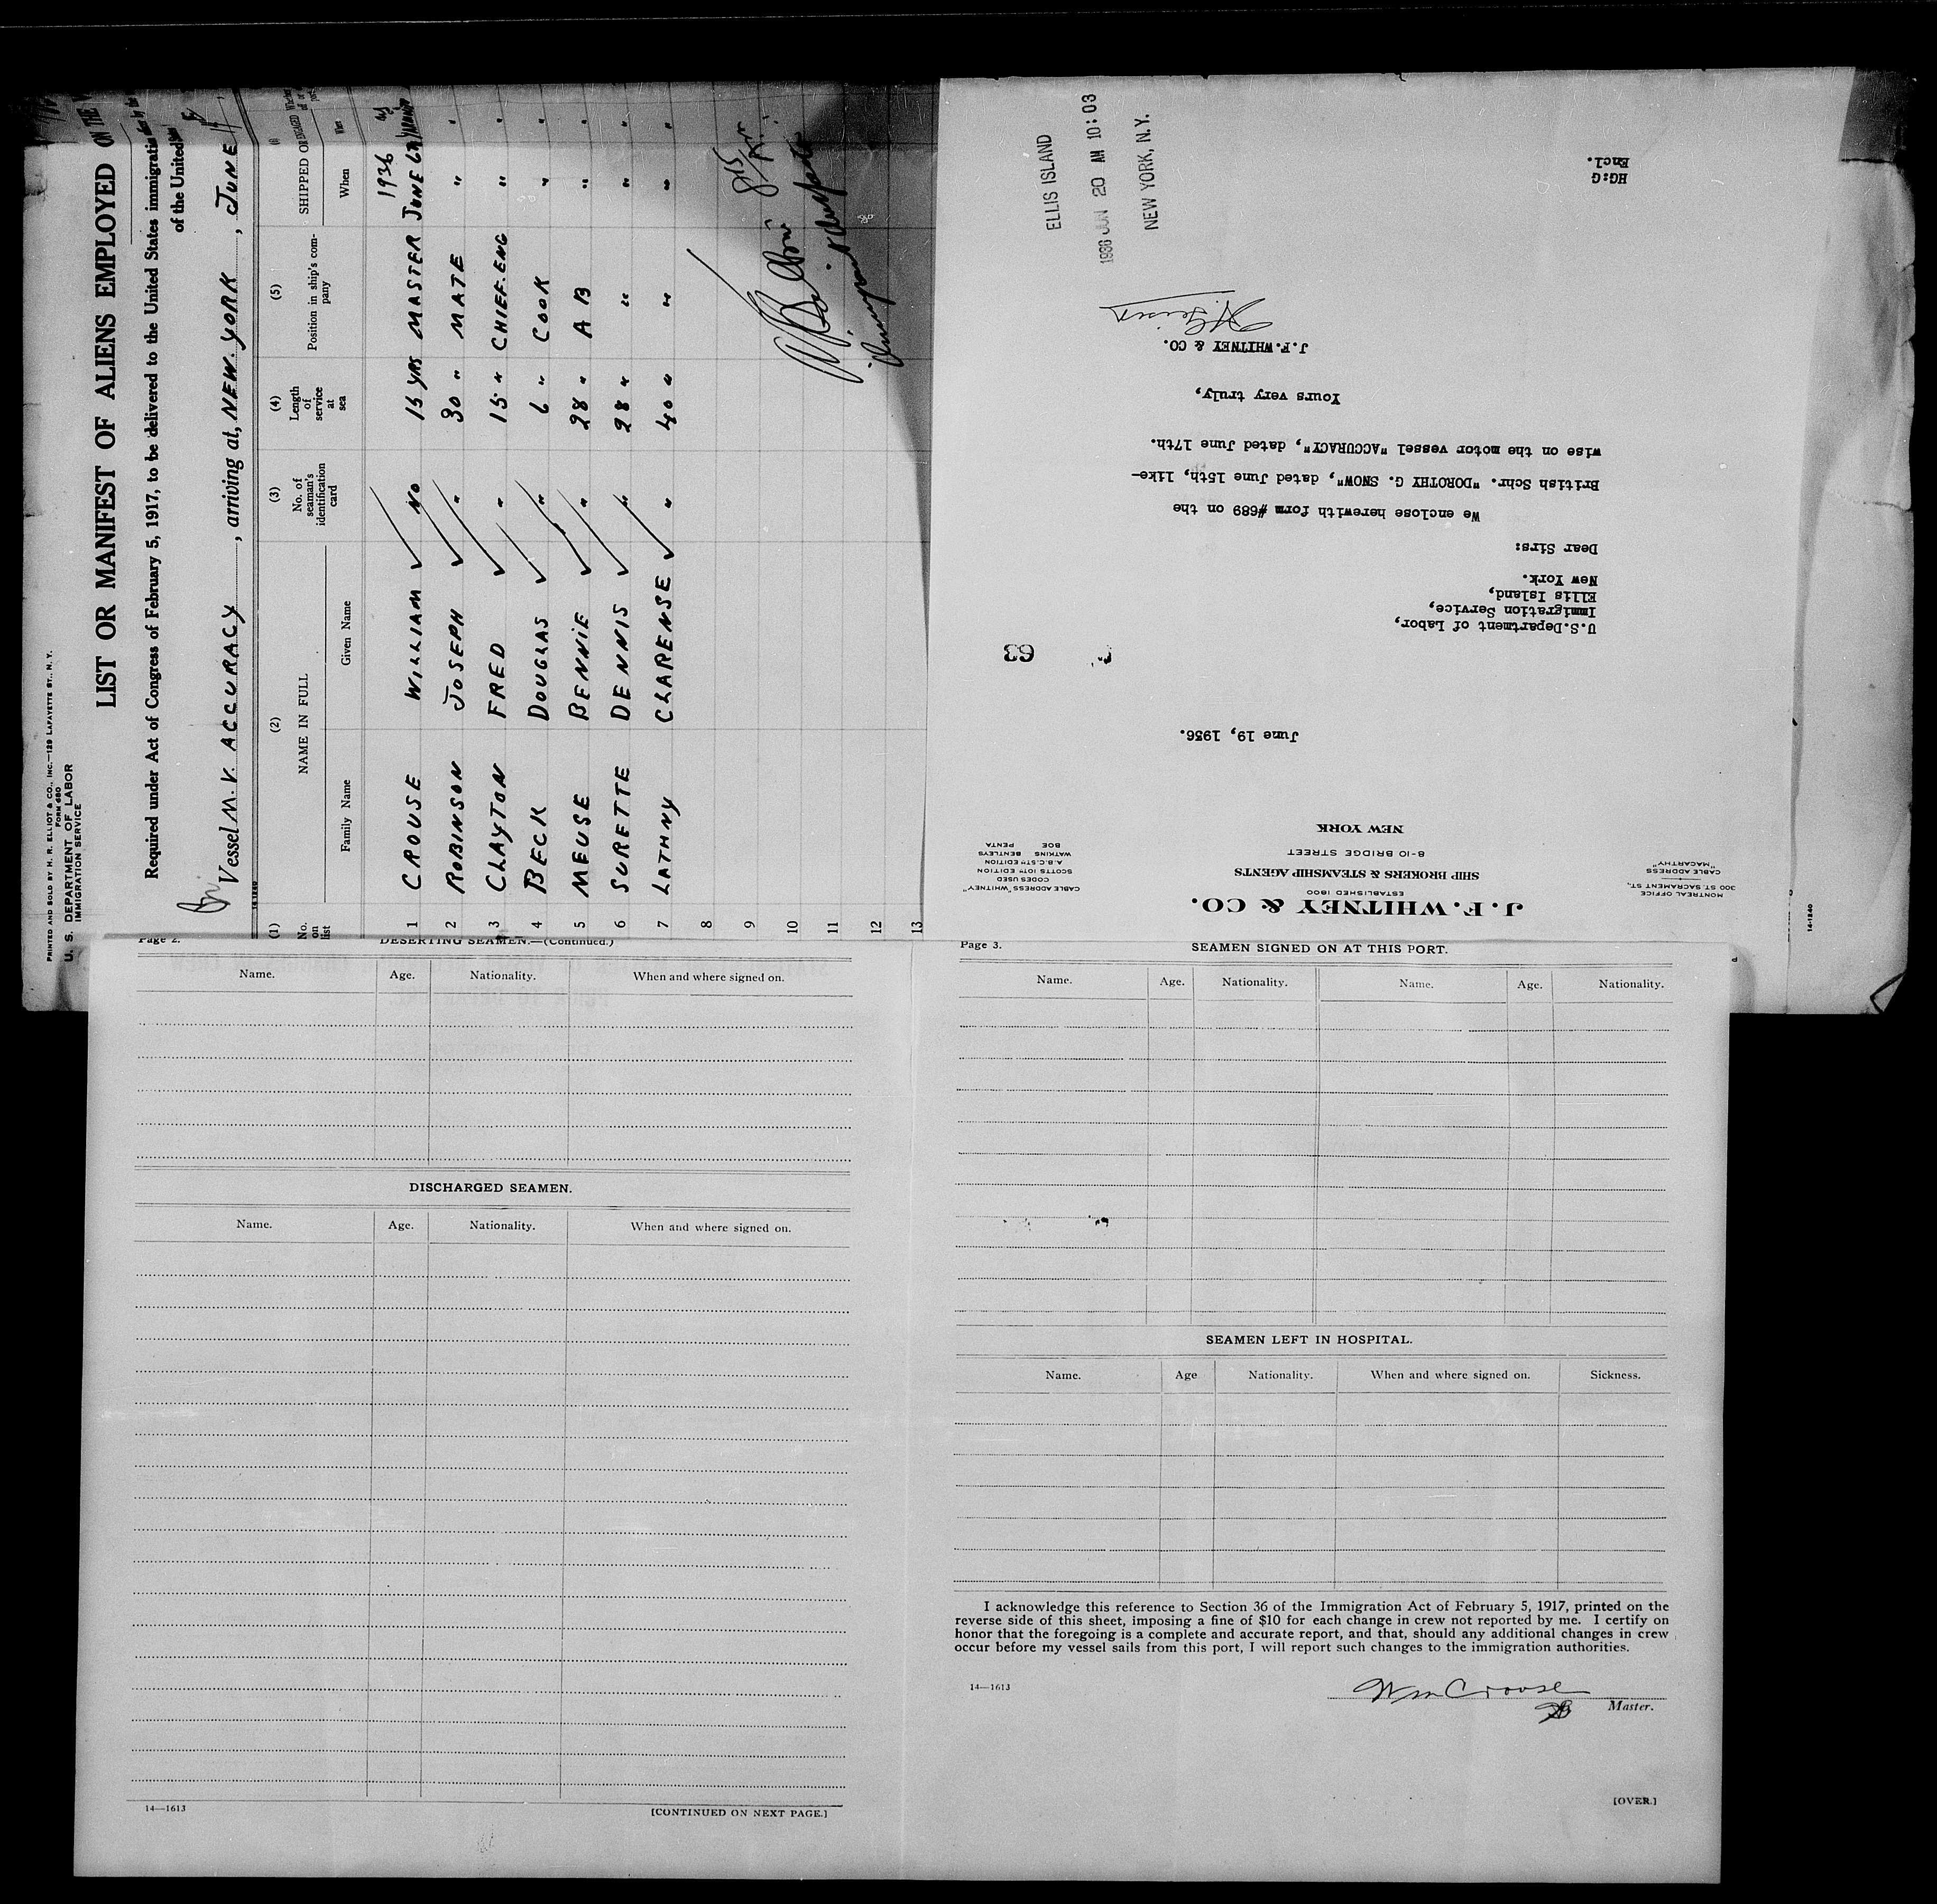 PRINTED AND SOLD BY H. R. ELLIOT & CO., INC.—129 LAFAYETTE ST., N. Y.
FORM 680
U. S. DEPARTMENT OF LABOR
IMMIGRATION SERVICE
LIST OR MANIFEST OF ALIENS EMPLOYED ON THE
Required under Act of Congress of February 5, 1917, to be delivered to the United States immigration
of the United
Vessel M.V. ACCURACY, arriving at, NEW YORK, JUNE
14-1240
(1) (2) (3) (4) (5)
No. on list NAME IN FULL No. of seaman's identification card Length of service at sea Position in ship's company SHIPPED OR ENGAGED
Family Name Given Name When
1936
1 CROUSE WILLIAM NO 15 YRS MASTER JUNE
2 ROBINSON JOSEPH " 30 " MATE " "
3 CLAYTON FRED " 15 " CHIEF.ENG " "
4 BECK DOUGLAS " 6 " COOK " "
5 MEUSE BENNIE " 28 " A B " "
6 SURETTE DENNIS " 28 " " " "
7 LATHNY CLARENSE " 40 " " " "
8
9
10
11
12
13
J. F. WHITNEY & CO.
ESTABLISHED 1800
SHIP BROKERS & STEAMSHIP AGENTS
8-10 BRIDGE STREET
NEW YORK
MONTREAL OFFICE
300 ST. SACRAMENT ST.,
CABLE ADDRESS
"MACARTHY"
CABLE ADDRESS, "WHITNEY"
CODES USED
SCOTTS 10TH EDITION
A.B.C. 5TH EDITION
WATKINS BENTLEYS
BOE PENTA
June 19, 1936.
63
U.S.Department of Labor,
Immigration Service,
Ellis Island,
New York.
Dear Sirs:
We enclose herewith form #689 on the
British Schr. "DOROTHY G. SNOW", dated June 15th, like-
wise on the motor vessel "ACCURACY", dated June 17th.
Yours very truly,
J.F.WHITNEY & CO.
HG:G
Encl.
ELLIS ISLAND
1936 JUN 20 AM 10:03
NEW YORK, N.Y.
14-1240
Page 2. DESERTING SEAMEN.—(Continued.)
Name. Age. Nationality. When and where signed on.
DISCHARGED SEAMEN.
Name. Age. Nationality. When and where signed on.
14—1613 [CONTINUED ON NEXT PAGE.]
Page 3. SEAMEN SIGNED ON AT THIS PORT.
Name. Age. Nationality. Name. Age. Nationality.
SEAMEN LEFT IN HOSPITAL.
Name. Age Nationality. When and where signed on. Sickness.
I acknowledge this reference to Section 36 of the Immigration Act of February 5, 1917, printed on the
reverse side of this sheet, imposing a fine of $10 for each change in crew not reported by me. I certify on
honor that the foregoing is a complete and accurate report, and that, should any additional changes in crew
occur before my vessel sails from this port, I will report such changes to the immigration authorities.
14—1613
Wm Crouse
Master.
[OVER.]